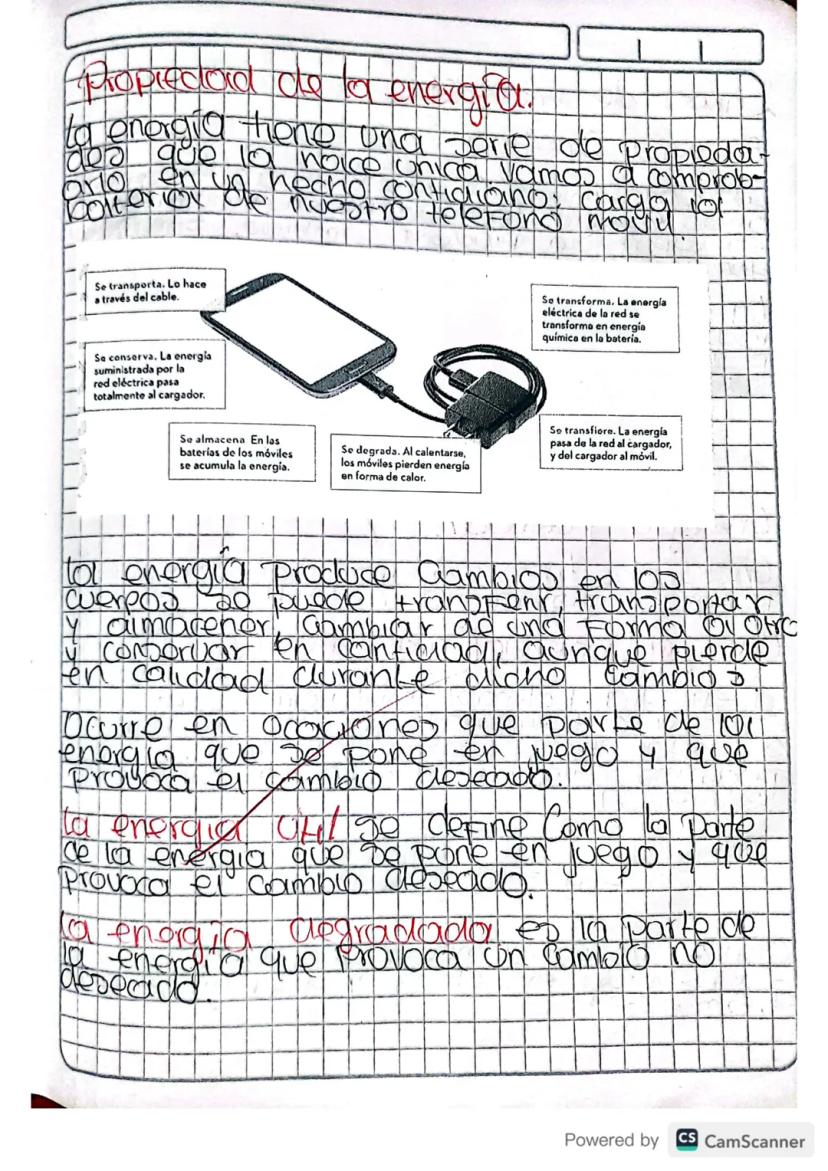 Propiedad de la energía.
La energía tiene una serie de propieda-
des que la hace unica vamos a comprob-
arlo en un hecho contidiano: carga la
bateria de nuestro telefono movil.
Se transporta. Lo hace
a través del cable.
Se transforma. La energía
eléctrica de la red se
transforma en energía
química en la batería.
Se conserva. La energía
suministrada por la
red eléctrica pasa
totalmente al cargador.
Se almacena En las
baterías de los móviles
se acumula la energía.
Se degrada. Al calentarse,
los móviles pierden energía
en forma de calor.
Se transfiere. La energía
pasa de la red al cargador,
y del cargador al móvil.
la energía produce Cambios en los
cuerpos se puede transferir, transportar
y almacener, cambiar de una forma a otra
y conservar en cantidad, aunque pierde
en calidad durante dicho cambios.
Ocurre en ocaciones que parte de la
energia que se pone en juego y que
provoca el cambio deseado.
La energia útil se define Como la parte
de la energia que se pone en juego y que
provoca el cambio deseado.
La energía degradada es la parte de
la energía que provoca un cambio no
deseado.
Powered by CS CamScanner